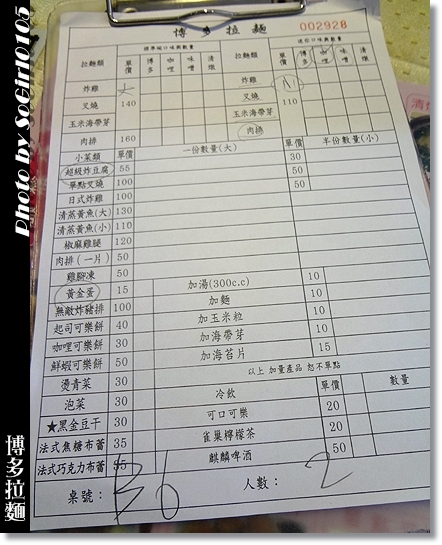 博多拉麵 002928
標準碗口味與數量 迷你口味與數量
拉麵類 單價 博多 咖哩 味噌 清燉 拉麵類 單價 博多 咖哩 味噌 清燉
炸雞 炸雞
叉燒 140 叉燒 110
玉米海帶芽 玉米海帶芽
肉排 160 肉排
小菜類 單價 一份數量(大) 單價 半份數量(小)
超級炸豆腐 55 30
單點叉燒 100 50
日式炸雞 100 50
清蒸黃魚(大) 130
清蒸黃魚(小) 110
椒麻雞腿 120
肉排(一片) 50
雞腳凍 50
黃金蛋 15 加湯(300c.c) 10
無敵炸豬排 100 加麵 10
起司可樂餅 40 加玉米粒 10
咖哩可樂餅 30 加海帶芽 10
鮮蝦可樂餅 50 加海苔片 15
燙青菜 30 以上 加量產品 恕不單點
泡菜 30 冷飲 單價 數量
★黑金豆干 30 可口可樂 20
法式焦糖布蕾 35 雀巢檸檬茶 20
法式巧克力布蕾 35 麒麟啤酒 50
桌號: B6 人數: 2
Photo by SoGirl0105
博多拉麵